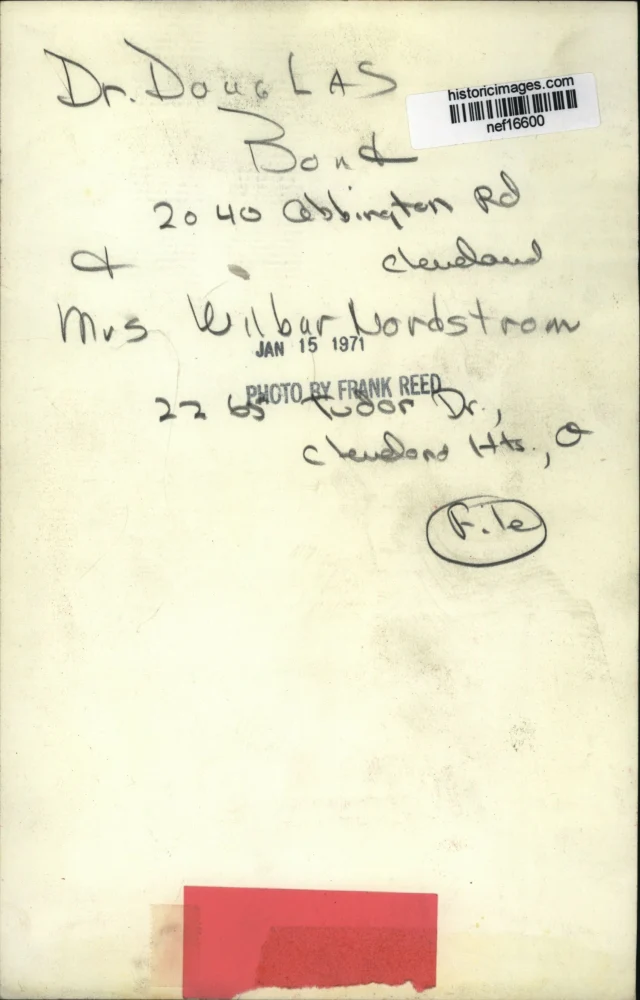 Dr. DougLAS
historicimages.com
nef16600
Bond
2040 Abbington Rd
& Cleveland
Mrs Wilbur Nordstrom
JAN 15 1971
PHOTO BY FRANK REED
2265 Tudor Dr.,
Cleveland Hts., O
File